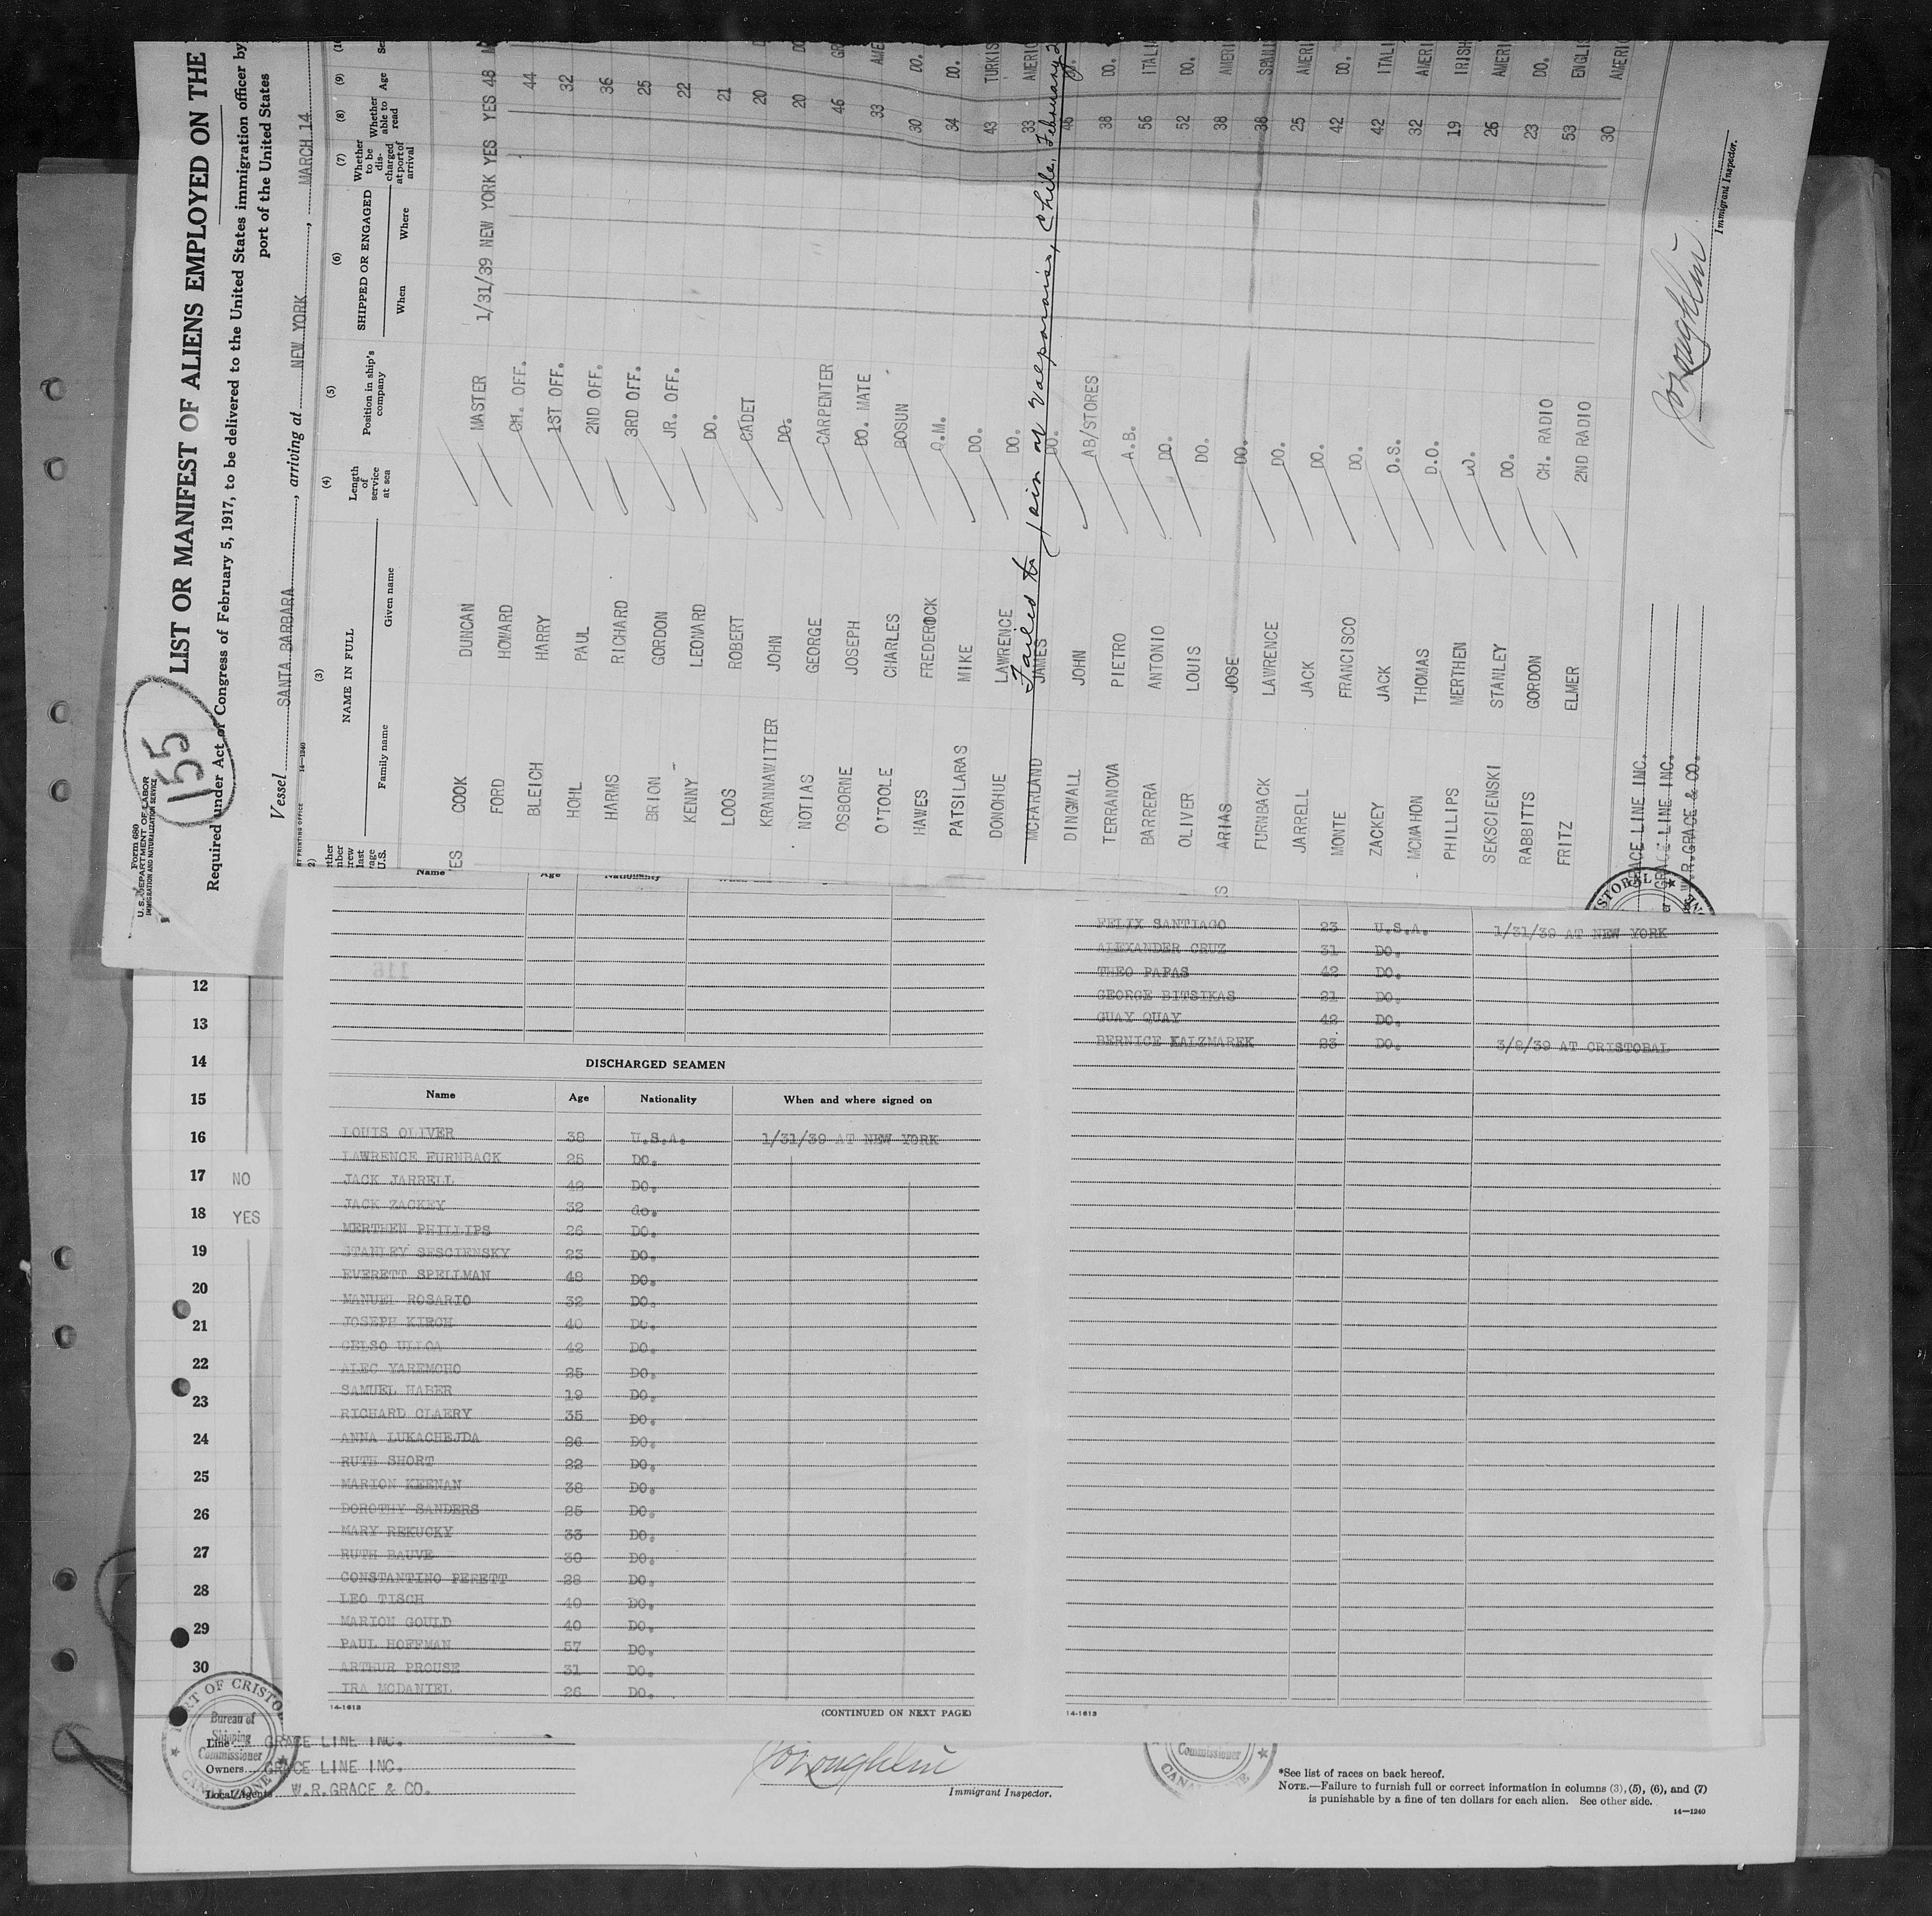 Form 680
U.S. DEPARTMENT OF LABOR
IMMIGRATION AND NATURALIZATION SERVICE
155
LIST OR MANIFEST OF ALIENS EMPLOYED ON THE
Required under Act of Congress of February 5, 1917, to be delivered to the United States immigration officer by
port of the United States
Vessel SANTA BARBARA, arriving at NEW YORK, MARCH 14
14—1240
(3) (4) (5) (6) (7) (8) (9)
NAME IN FULL Length of service at sea Position in ship's company SHIPPED OR ENGAGED Whether to be discharged at port of arrival Whether able to read Age
Family name Given name When Where
COOK DUNCAN MASTER 1/31/39 NEW YORK YES YES 48
FORD HOWARD CH. OFF. 44
BLEICH HARRY 1ST OFF. 32
HOHL PAUL 2ND OFF. 36
HARMS RICHARD 3RD OFF. 25
BRION GORDON JR. OFF. 22
KENNY LEONARD DO. 21
LOOS ROBERT CADET 20
KRANNAWITTER JOHN DO. 20
NOTIAS GEORGE CARPENTER 46
OSBORNE JOSEPH DO. MATE 33
O'TOOLE CHARLES BOSUN 30 DO.
HAWES FREDERICK Q.M. 34 DO.
PATSILARAS MIKE DO. 43 TURKIS
DONOHUE LAWRENCE DO. 33 AMERIC
MCFARLAND JAMES DO. 46
Failed to join at Valparaiso, Chile, February 2
DINGWALL JOHN AB/STORES 38 DO.
TERRANOVA PIETRO A.B. 56 ITALIA
BARRERA ANTONIO DO. 52 DO.
OLIVER LOUIS DO. 38 AMERI
ARIAS JOSE DO. 38 SPANI
FURNBACK LAWRENCE DO. 25 AMERI
JARRELL JACK DO. 42 DO.
MONTE FRANCISCO DO. 42 ITALI
ZACKEY JACK O.S. 32 AMERI
MCMAHON THOMAS D.O. 19 IRISH
PHILLIPS MERTHEN W. 26 AMERI
SEKSCIENSKI STANLEY DO. 23 DO.
RABBITTS GORDON CH. RADIO 53 ENGLI
FRITZ ELMER 2ND RADIO 30 AMERI
GRACE LINE INC.
GRACE LINE INC.
W.R.GRACE & CO.
Immigrant Inspector.
Name Age Nationality
116
DISCHARGED SEAMEN
Name Age Nationality When and where signed on
LOUIS OLIVER 38 U.S.A. 1/31/39 AT NEW YORK
LAWRENCE FURNBACK 25 DO.
JACK JARRELL 42 DO.
JACK ZACKEY 32 do.
MERTHEN PHILLIPS 26 DO.
STANLEY SESCIENSKY 23 DO.
EVERETT SPELLMAN 48 DO.
MANUEL ROSARIO 32 DO.
JOSEPH KIRCH 40 DO.
CELSO ULLOA 42 DO.
ALEC YAREMCHO 25 DO.
SAMUEL HABER 19 DO.
RICHARD CLAERY 35 DO.
ANNA LUKACHEJDA 26 DO.
RUTH SHORT 22 DO.
MARION KEENAN 38 DO.
DOROTHY SANDERS 25 DO.
MARY REKUCKY 33 DO.
RUTH BAUVE 30 DO.
CONSTANTINO PERETT 28 DO.
LEO TISCH 40 DO.
MARION GOULD 40 DO.
PAUL HOFFMAN 57 DO.
ARTHUR PROUSE 31 DO.
IRA MCDANIEL 26 DO.
14-1613
(CONTINUED ON NEXT PAGE)
FELIX SANTIAGO 23 U.S.A. 1/31/39 AT NEW YORK
ALEXANDER CRUZ 31 DO.
THEO PAPAS 42 DO.
GEORGE BITSIKAS 21 DO.
GUAY QUAY 42 DO.
BERNICE KALZMAREK 23 DO. 3/8/39 AT CRISTOBAL
14-1613
12
13
14
15
16
17 NO
18 YES
19
20
21
22
23
24
25
26
27
28
29
30
PORT OF CRISTO
Bureau of
Shipping
Commissioner
CANAL ZONE
Line GRACE LINE INC.
Owners GRACE LINE INC.
Local Agents W.R.GRACE & CO.
Immigrant Inspector.
Commissioner
CANAL ZONE
*See list of races on back hereof.
NOTE.—Failure to furnish full or correct information in columns (3), (5), (6), and (7)
is punishable by a fine of ten dollars for each alien. See other side.
14—1240